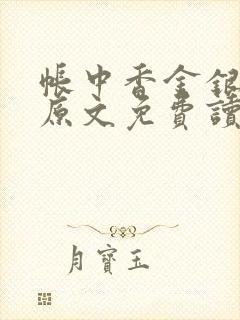 帳中香金銀
原文免費讀
月寶玉